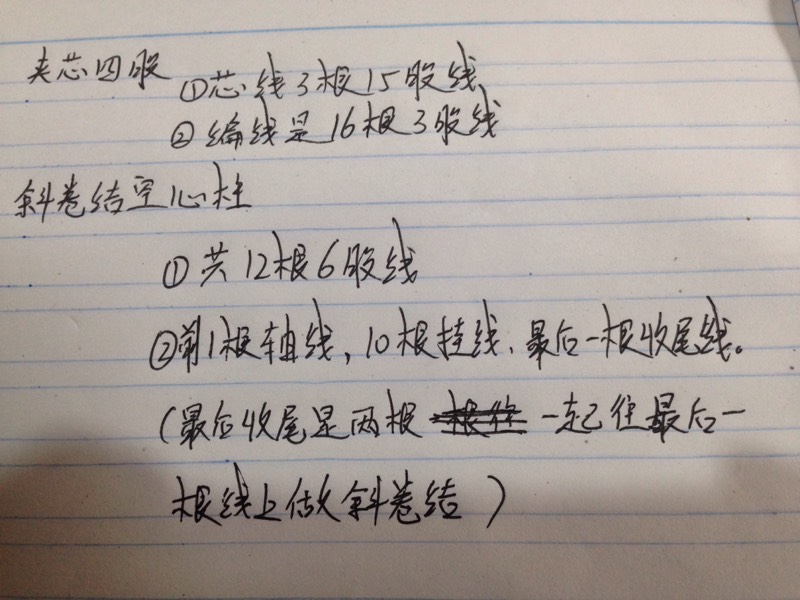 夹芯四股 ①芯线3根15股线
②编线是16根3股线
斜卷结空心柱
①共12根6股线
②前1根轴线,10根挂线、最后一根收尾线。
(最后收尾是两根 一起往最后一
根线上做斜卷结)